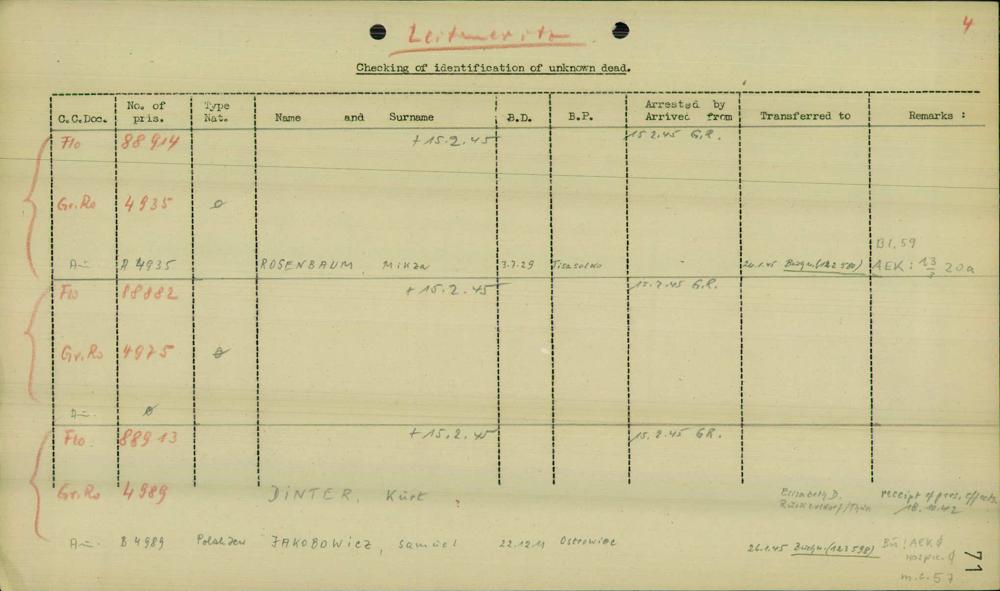 Leitmeritz
4
Checking of identification of unknown dead.
C.C.Doc. No. of pris. Type Nat. Name and Surname B.D. B.P. Arrested by Arrived from Transferred to Remarks :
Flo 88914 + 15.2.45 15.2.45 G.R.
Gr.Ro 4935 ø
Bl. 59
A 4935 ROSENBAUM, 3.7.29 26.1.45 AEK: 20a
Flo 88882 + 15.2.45 15.2.45 G.R.
Gr.Ro 4975 ø
ø
Flo 88913 + 15.2.45 15.2.45 GR.
Gr.Ro 4989 DINTER, Kurt ? Elisabeth D. receipt of pers. effects
18.10.42
B 4989 JAKOBOWICZ, Samuel 22.12.11 Ostrowiec 26.1.45 AEK ø
71